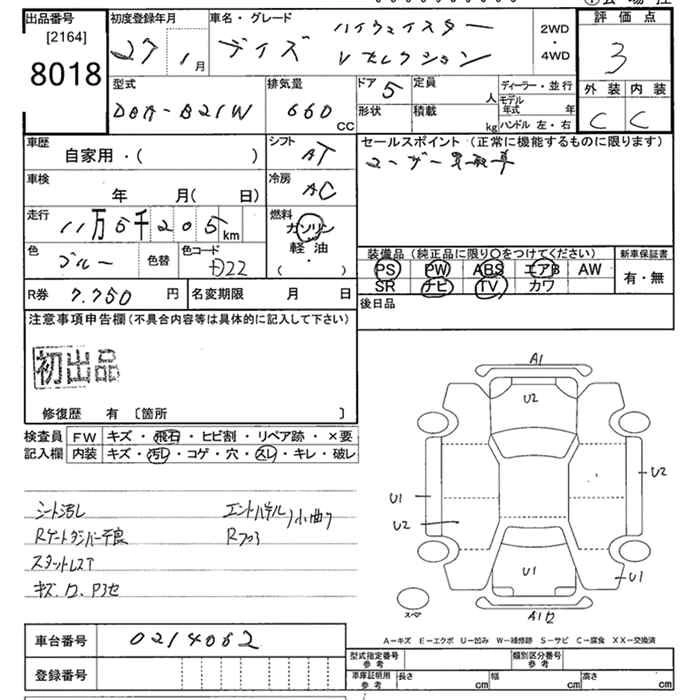 出品番号
[2164]
8018
初度登録年月
27 1月
車名・グレード
ハイウェイスター
デイズ Vセレクション
2WD
・
4WD
評価点
3
外装 内装
C C
型式
DBA-B21W
排気量
660 CC
ドア 5
定員 人
形状
積載 kg
ディーラー・並行
モデル年式 年
ハンドル 左・右
車歴
自家用・( )
シフト
AT
車検
年 月( 日)
冷房
AC
走行
11万5千205km
燃料
ガソリン
軽油
( ・ )
色
ブルー
色替
色コード
R券 7.750 円
名変期限 月 日
セールスポイント (正常に機能するものに限ります)
ユーザー買取車
装備品 (純正品に限り〇をつけてください)
PS PW ABS エアB AW
SR ナビ TV カワ
新車保証書
有・無
後日品
注意事項申告欄(不具合内容等は具体的に記入して下さい)
初出品
修復歴 有 〔箇所 〕
検査員記入欄
FW キズ・飛石・ヒビ割・リペア跡・×要
内装 キズ・汚レ・コゲ・穴・スレ・キレ・破レ
シート汚レ
スタットレス下
A1
U2
U2
U1
U2
U1
U1
スペア
A－キズ E－エクボ U－凹み W－補修跡 S－サビ C－腐食 XX－交換済
車台番号 0214062
登録番号
型式指定番号 参考
類別区分番号 参考
車庫証明用 参考
長さ cm
幅 cm
高さ cm